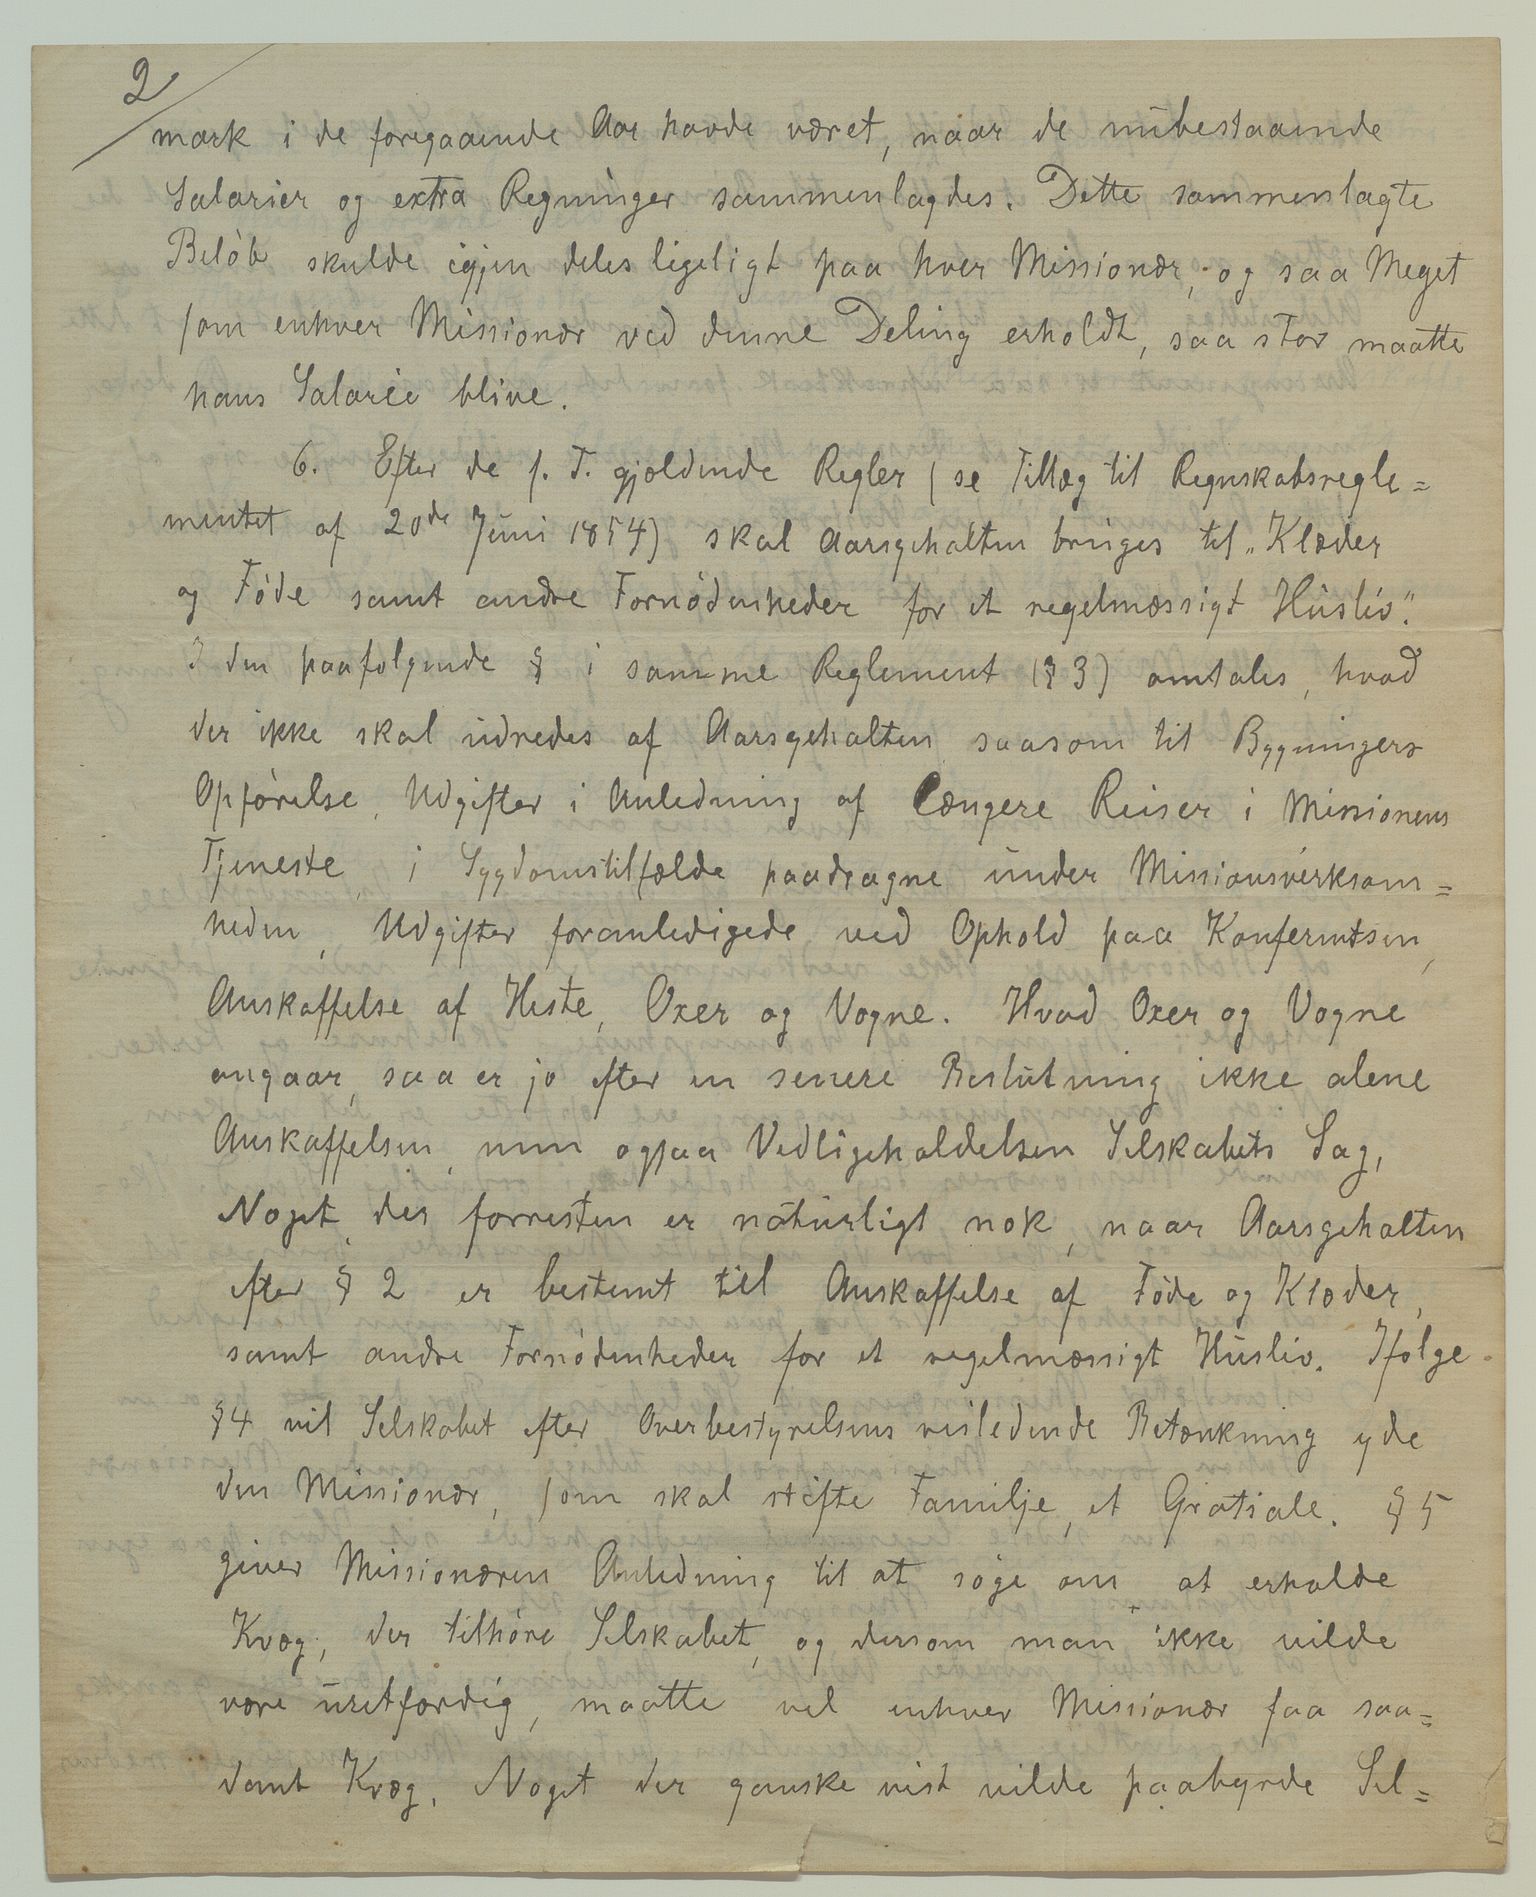 2
mark i de foregaaende Aar havde været, naar de nubestaaende
Salarier og extra Regninger sammenlagdes. Dette sammenlagte
Beløb skulde igjen deles ligeligt paa hver Missionær, og saa Meget
som enhver Missionær ved denne Deling erholdt, saa stor maatte
hans Salarie blive.
6. Efter de f. T. gjældende Regler (se Tillæg til Regnskabsregle=
mentet af 20de Juni 1854) skal Aarsgehalten bruges til „Klæder
og Føde samt andre Fornødenheder for et regelmæssigt Husliv."
I den paafølgende § i samme Reglement (§ 3) omtales, hvad
der ikke skal udredes af Aarsgehalten saasom til Bygningers
Opførelse, Udgifter i Anledning af længere Reiser i Missionens
Tjeneste, i Sygdomstilfælde paadragne under Missionsverksom=
heden, Udgifter foranledigede ved Ophold paa Konferentsen,
Anskaffelse af Heste, Oxer og Vogne. Hvad Oxer og Vogne
angaar, saa er jo efter en senere Beslutning ikke alene
Anskaffelsen, men ogsaa Vedligeholdelsen Selskabets Sag,
Noget, der forresten er naturligt nok, naar Aarsgehalten
efter § 2 er bestemt til Anskaffelse af Føde og Klæder,
samt andre Fornødenheder for et regelmæssigt Husliv. Ifølge
§ 4 vil Selskabet efter Overbestyrelsens veiledende Betænkning yde
den Missionær, som skal stifte Familje, et Gratiale. § 5
giver Missionæren Anledning til at søge om at erholde
Kvæg, der tilhøre Selskabet, og dersom man ikke vilde
være uretfærdig, maatte vel enhver Missionær faa saa=
dant Kvæg, Noget der ganske vist vilde paabyrde Sel=